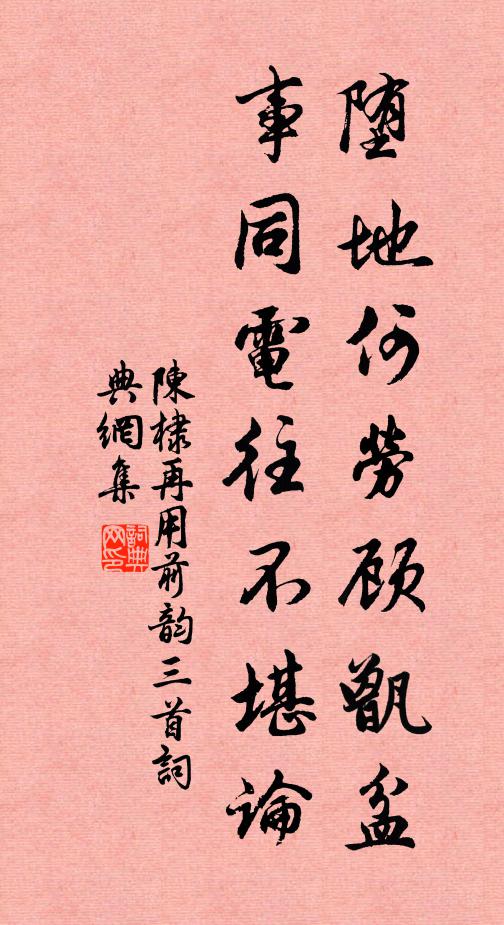 堕地何劳顾甑盆
事同電往不堪論
陳棣再用前韵三首詞
典網集
詞典网印